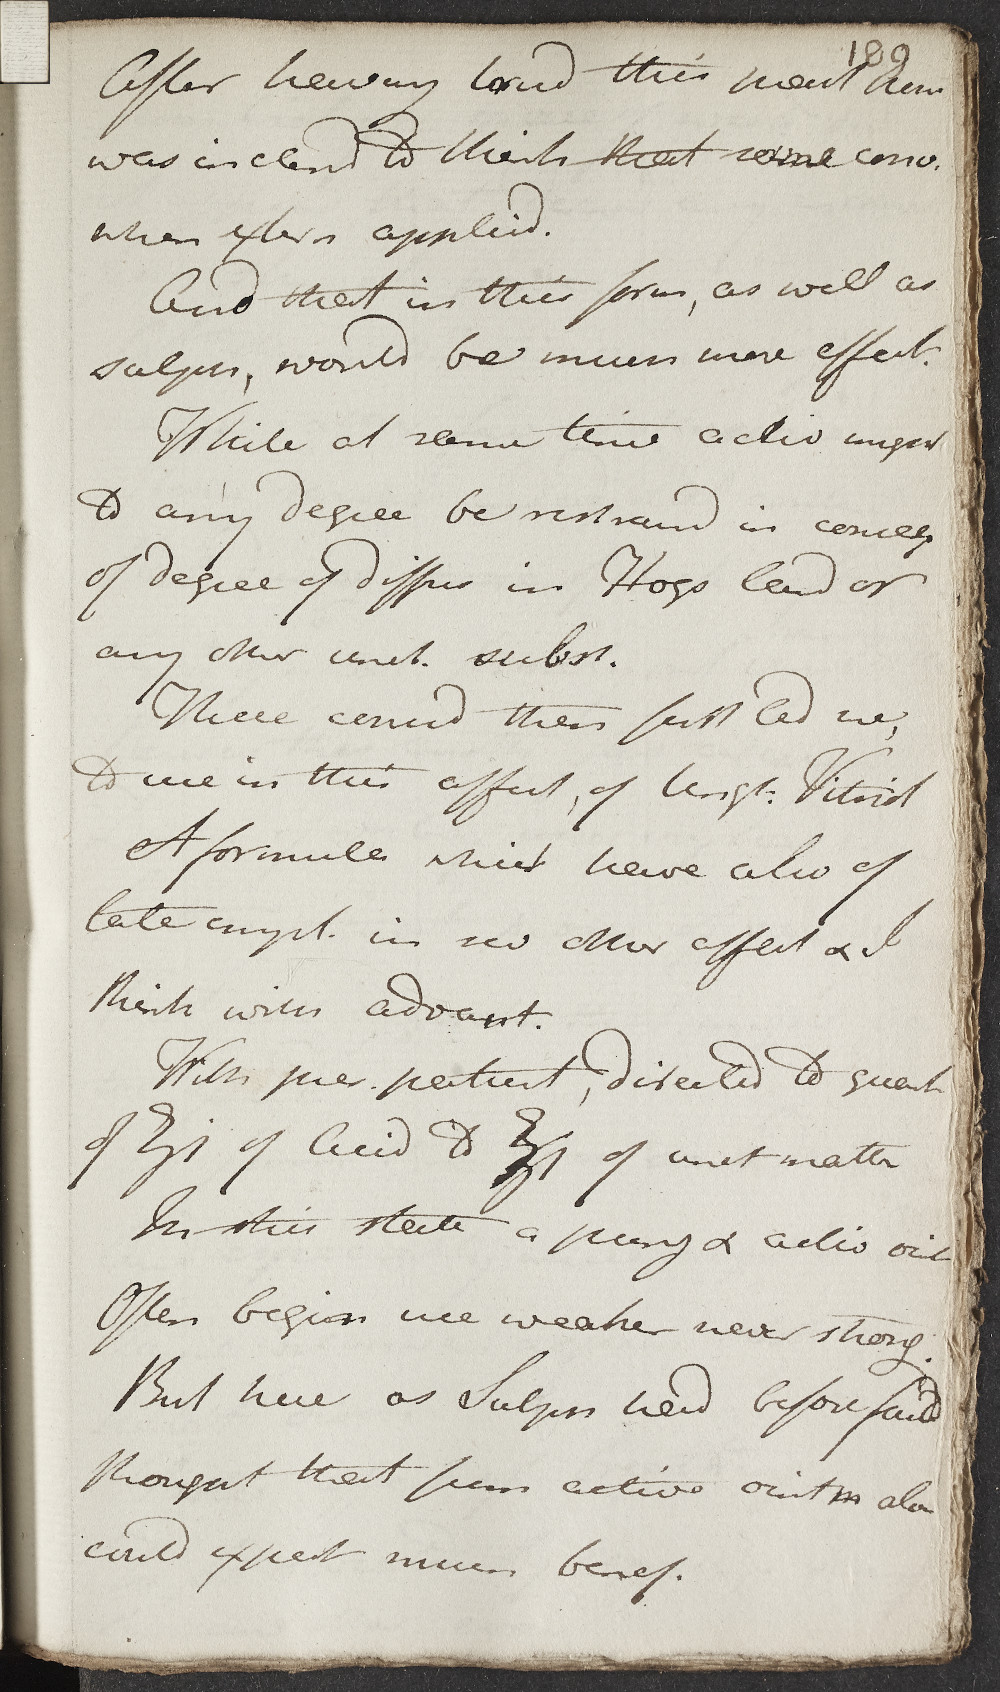 189
After having tried this neut
was inclend to think that some conv.
when extern applied.
And that in this form, as well as
sulphr, would be much more effect.
While at same time activ might
to any degree be restraind in conseq
of degree of diffus in Hogs lard or
any other unct. subst.
These consid then first led me,
to use in this affect, of Ungt. Vitriol
A formula which have also of
late empl. in sev other affect & I
think with advant.
With pres. patient, directed to quant
of ʒj of Acid to ℥j of unct matter
In this state a pung & activ oint
Often begin use weaker never strong.
But here as Sulphr had before faild
thought that from active ointm alon
could expect much benef.